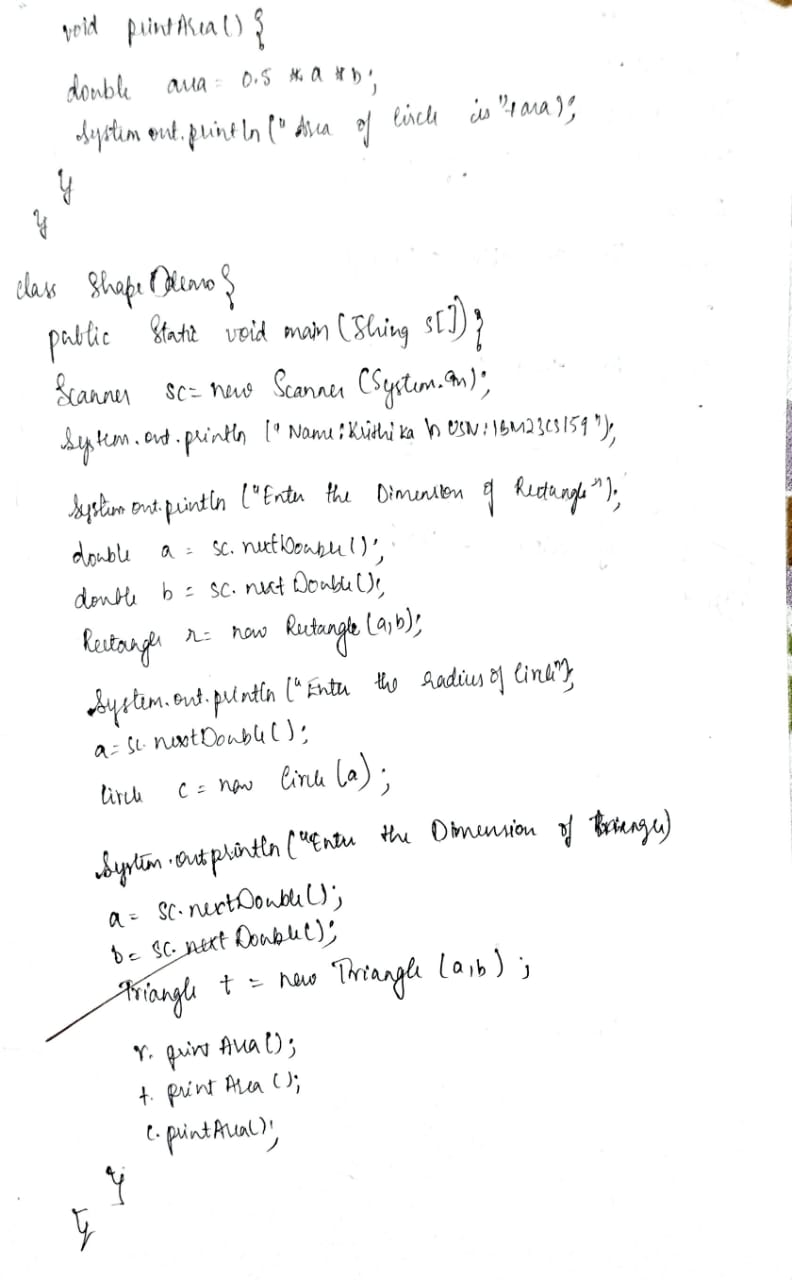 void printArea() {
double area = 0.5 * a * b;
System.out.println(" Area of Circle is "+area);
}
}
class ShapeDemo {
public static void main (String s[]) {
Scanner sc = new Scanner (System.in);
System.out.println (" Name: Krithika h USN: 1BM23CS159 ");
System.out.println ("Enter the Dimension of Rectangle");
double a = sc.nextDouble();
double b = sc.nextDouble();
Rectangle r = new Rectangle (a,b);
System.out.println ("Enter the radius of Circle");
a = sc.nextDouble();
Circle c = new Circle (a);
System.out println ("Enter the Dimension of Triangle)
a = sc.nextDouble();
b = sc.nextDouble();
Triangle t = new Triangle (a,b);
r. print Area();
t. print Area ();
c. printArea();
}
}